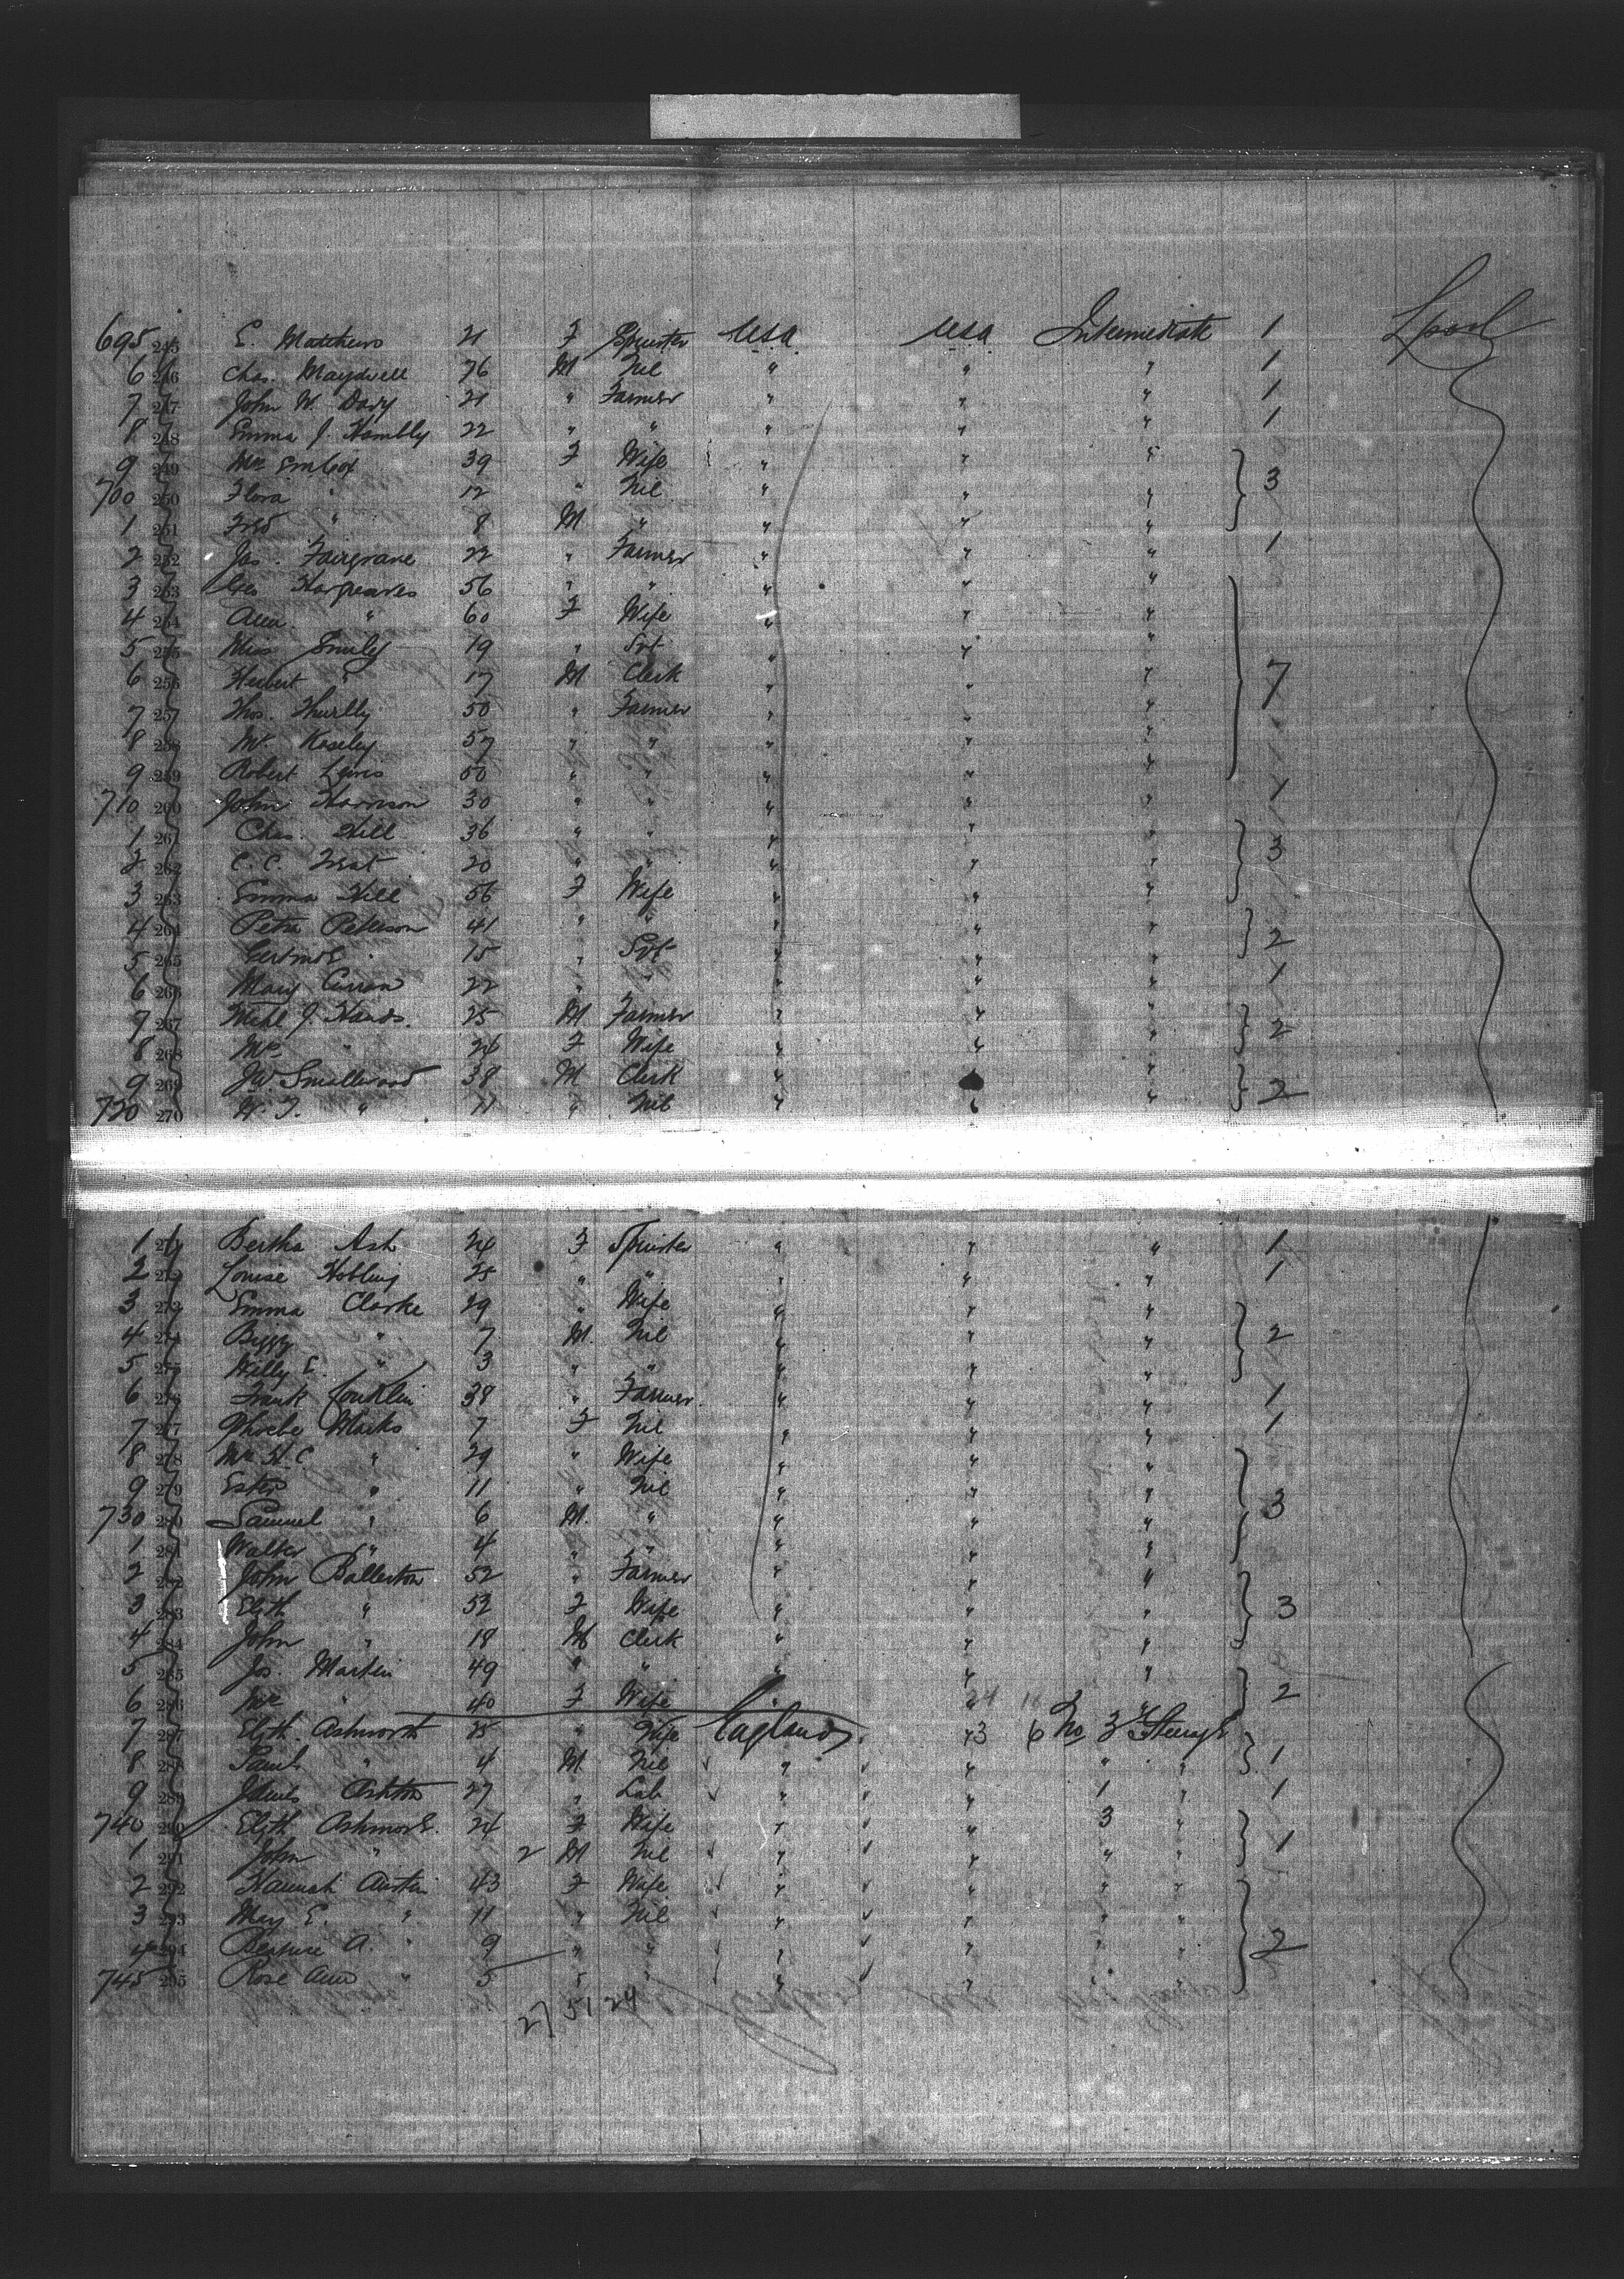 695 245 E. Matthews 21 F Spinster USA USA Intermediate 1 Lpool
6 246 Chas. Maydwell 76 M Nil " " " 1
7 247 John W. Davy 21 " Farmer " " " 1
8 248 Emma J. Hambly 22 " " " " " 1
9 249 Mrs Em Cox 39 F Wife " " "
700 250 Flora " 12 " Nil " " " 3
1 251 Fred " 8 M " " " "
2 252 Jas. Fairgrave 22 " Farmer " " " 1
3 253 Geo Hargreaves 56 " " " " "
4 254 Ann " 60 F Wife " " "
5 255 Miss Emily 19 " Svt " " "
6 256 Herbert " 17 M Clerk " " " 7
7 257 Thos. 50 " Farmer " " "
8 258 57 " " " " "
9 259 Robert Lewis 50 " " " " "
710 260 John Harrison 30 " " " " " 1
1 261 Chas. Hill 36 " " " " "
2 262 C. C. 20 " " " " " 3
3 263 Emma Hill 56 F Wife " " "
4 264 Petra Peterson 41 " " " " "
5 265 Gertrude 15 " Svt " " " 2
6 266 Mary Curran 22 " " " " " 1
7 267 J. Hands. 25 M Farmer " " "
8 268 Mrs " 24 F Wife " " " 2
9 269 JW Smallwood 38 M Clerk " "
720 270 " 11 " Nil " " " 2
1 271 Bertha Ash 24 F Spinster " " " 1
2 272 Louise Hobling 25 " " " " " 1
3 273 Emma Clarke 29 " Wife " " "
4 274 " 7 M. Nil " " " 2
5 275 Willy E. " 3 " " " " "
6 276 Frank Conklin 38 " Farmer " " " 1
7 277 Phoebe Marks 7 F Nil " " " 1
8 278 Mrs H. C " 29 " Wife " " "
9 279 Ester " 11 " Nil " " "
730 280 Samuel " 6 M. " " " " 3
1 281 Walter " 4 " " " " "
2 282 John Ballerton 52 " Farmer " " "
3 283 Elizth " 52 F Wife " " " 3
4 284 John " 18 M Clerk " " "
5 285 Jos. Martin 49 " " " " "
6 286 Mrs " 40 F Wife 24 " 2
7 287 Elizth. Ashworth 25 " Wife England 6 No 3 Steerage
8 288 Saml " 4 M Nil " " " " 1
9 289 James Ashton 27 " Lab " " 1 " 1
740 290 Elizth Ashmore 24 F Wife " " 3 "
1 291 John " 2 M Nil " " " " 1
2 292 Hannah Austin 43 F Wife " " " "
3 293 May E. " 11 " Nil " " " "
4 294 A. " 9 " " " " " " 2
745 295 Rose Ann " 5 " " " " " "
27 51 24